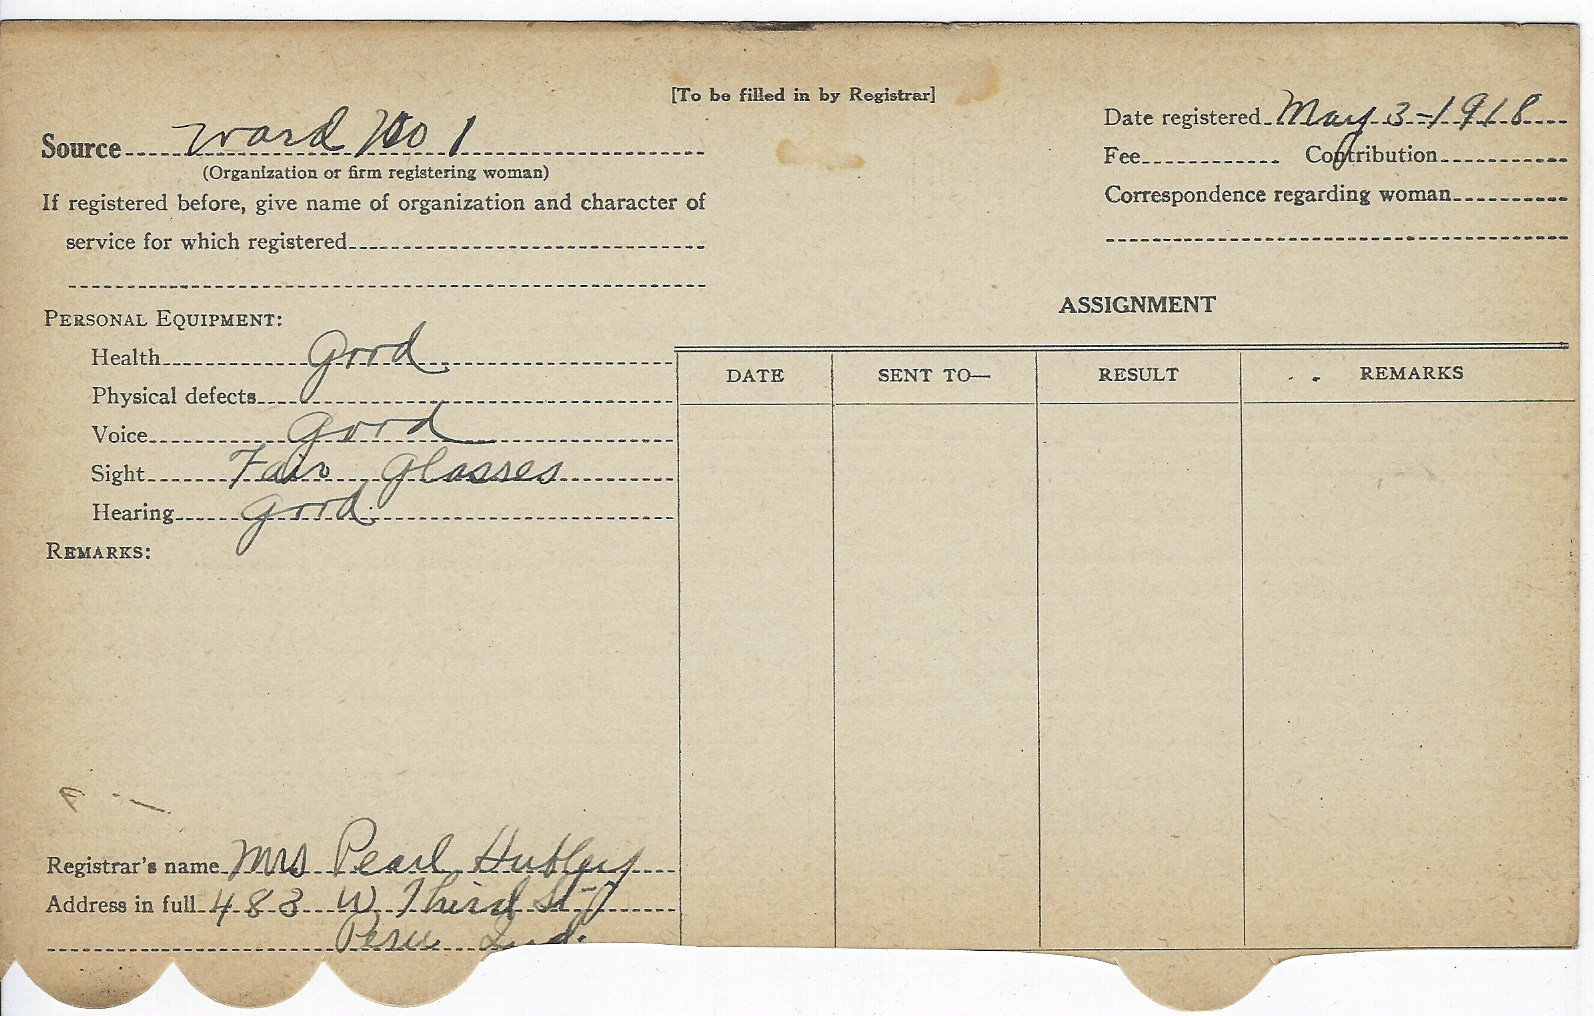 [To be filled in by Registrar]
Source Ward No 1
(Organization or firm registering woman)
If registered before, give name of organization and character of
service for which registered
Date registered May 3-1918
Fee Contribution
Correspondence regarding woman
PERSONAL EQUIPMENT:
Health Good
Physical defects
Voice Good
Sight Fair Glasses
Hearing Good
REMARKS:
ASSIGNMENT
DATE SENT TO— RESULT REMARKS
Registrar's name Mrs Pearl Hubley
Address in full 483 W Third St
Peru Ind.